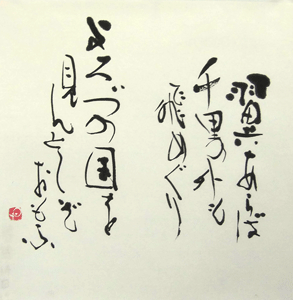 翼あらば
千里の外も
飛めぐり
よろづの国を
見んとしぞ
おもふ